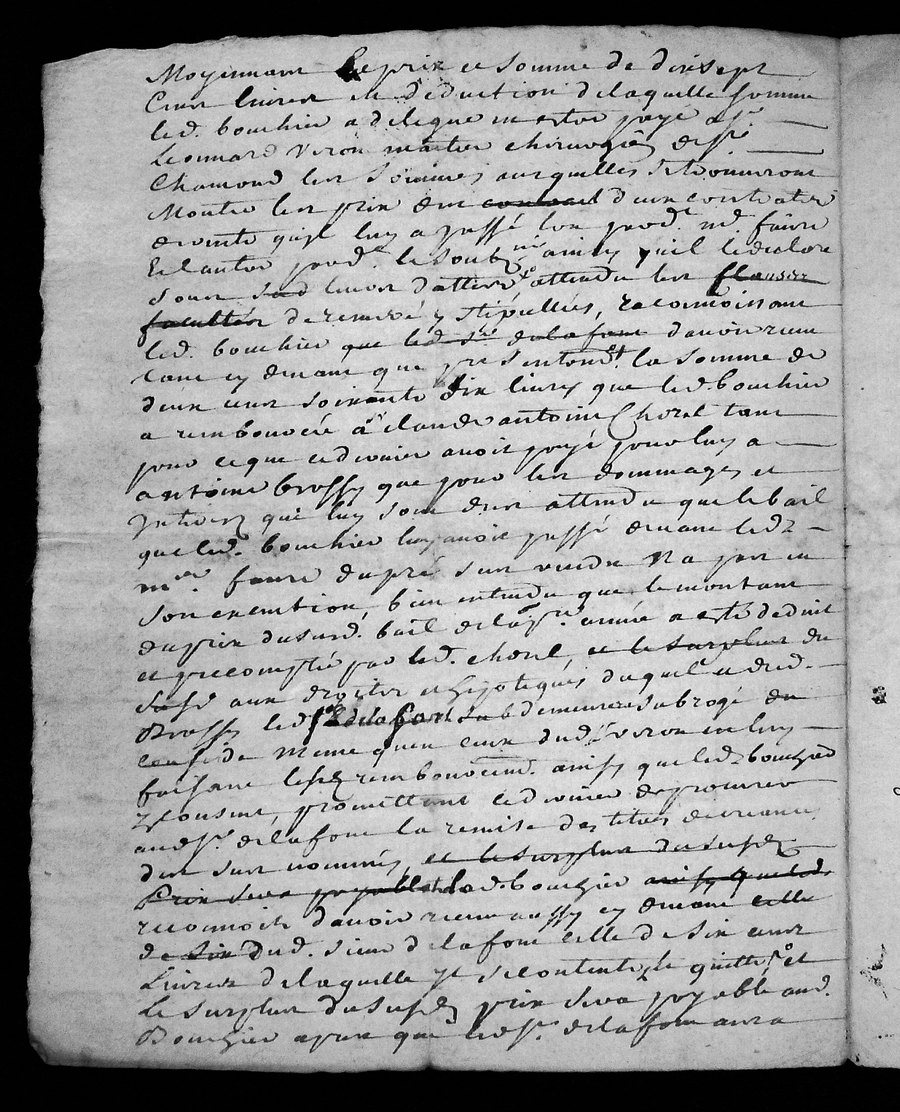 Moyennant Le prix et somme de dixsept
Cent livres en deduction de laquelle somme
led. bouchier a delegue payé a sr.
Leonnard Veron maitre chirurgien de st
Chamond les sommes auxquelles se trouveront
Monter les prix d'un contract d'un contrat de
vente qu'il luy a passé pard. md. faure
Et autre pard. le soubz.né ainsy qu'il le declare
sous attendu les clauses
facultés de remeré y stipullées, raconnoissant
led. bouchier que led. sr. delafont d'avoir receu
tant cy devant que presentemt. la somme de
deux cent soixante dix livres que led. bouchier
a rembourcée à claude antoine Chorel tant
pour ce que ce dernier avoit payé pour luy a
antoine brossy que pour les dommages et
Interets qui luy sont dus attendu que le bail
que led. bouchier luy avoit passé devant led.
me. faure du pré sus vendu N'a pas eu
son execution, bien entendu que le montant
du prix dususd. bail de la pnte. année a esté deduit
et precompté par led. chorel, et le surplus du
susd aux droits et hipoteques duquel et dud.
Brossy led. sr. delafont sub demeurera subrogé
de Meme qu'en ceux dud. Sr. Veron en luy
faisant led. rembourcemt. ainsy que led. bouchier
y consent, promettant ce dernier de procurer
aud. sr. delafont la remise des titres de creances
des sus nommés, et le surplus du susd.
Prix sera payable led. bouchier ainsy que led.
reconnoit d'avoir receu aussy cy devant celle
de six dud. sieur delafont celle de six cent
Livres de laquelle il se contente, le quitte, et
Le surplus du susd. prix sera payable aud.
Bouchier apres que led. sr. delafont aura